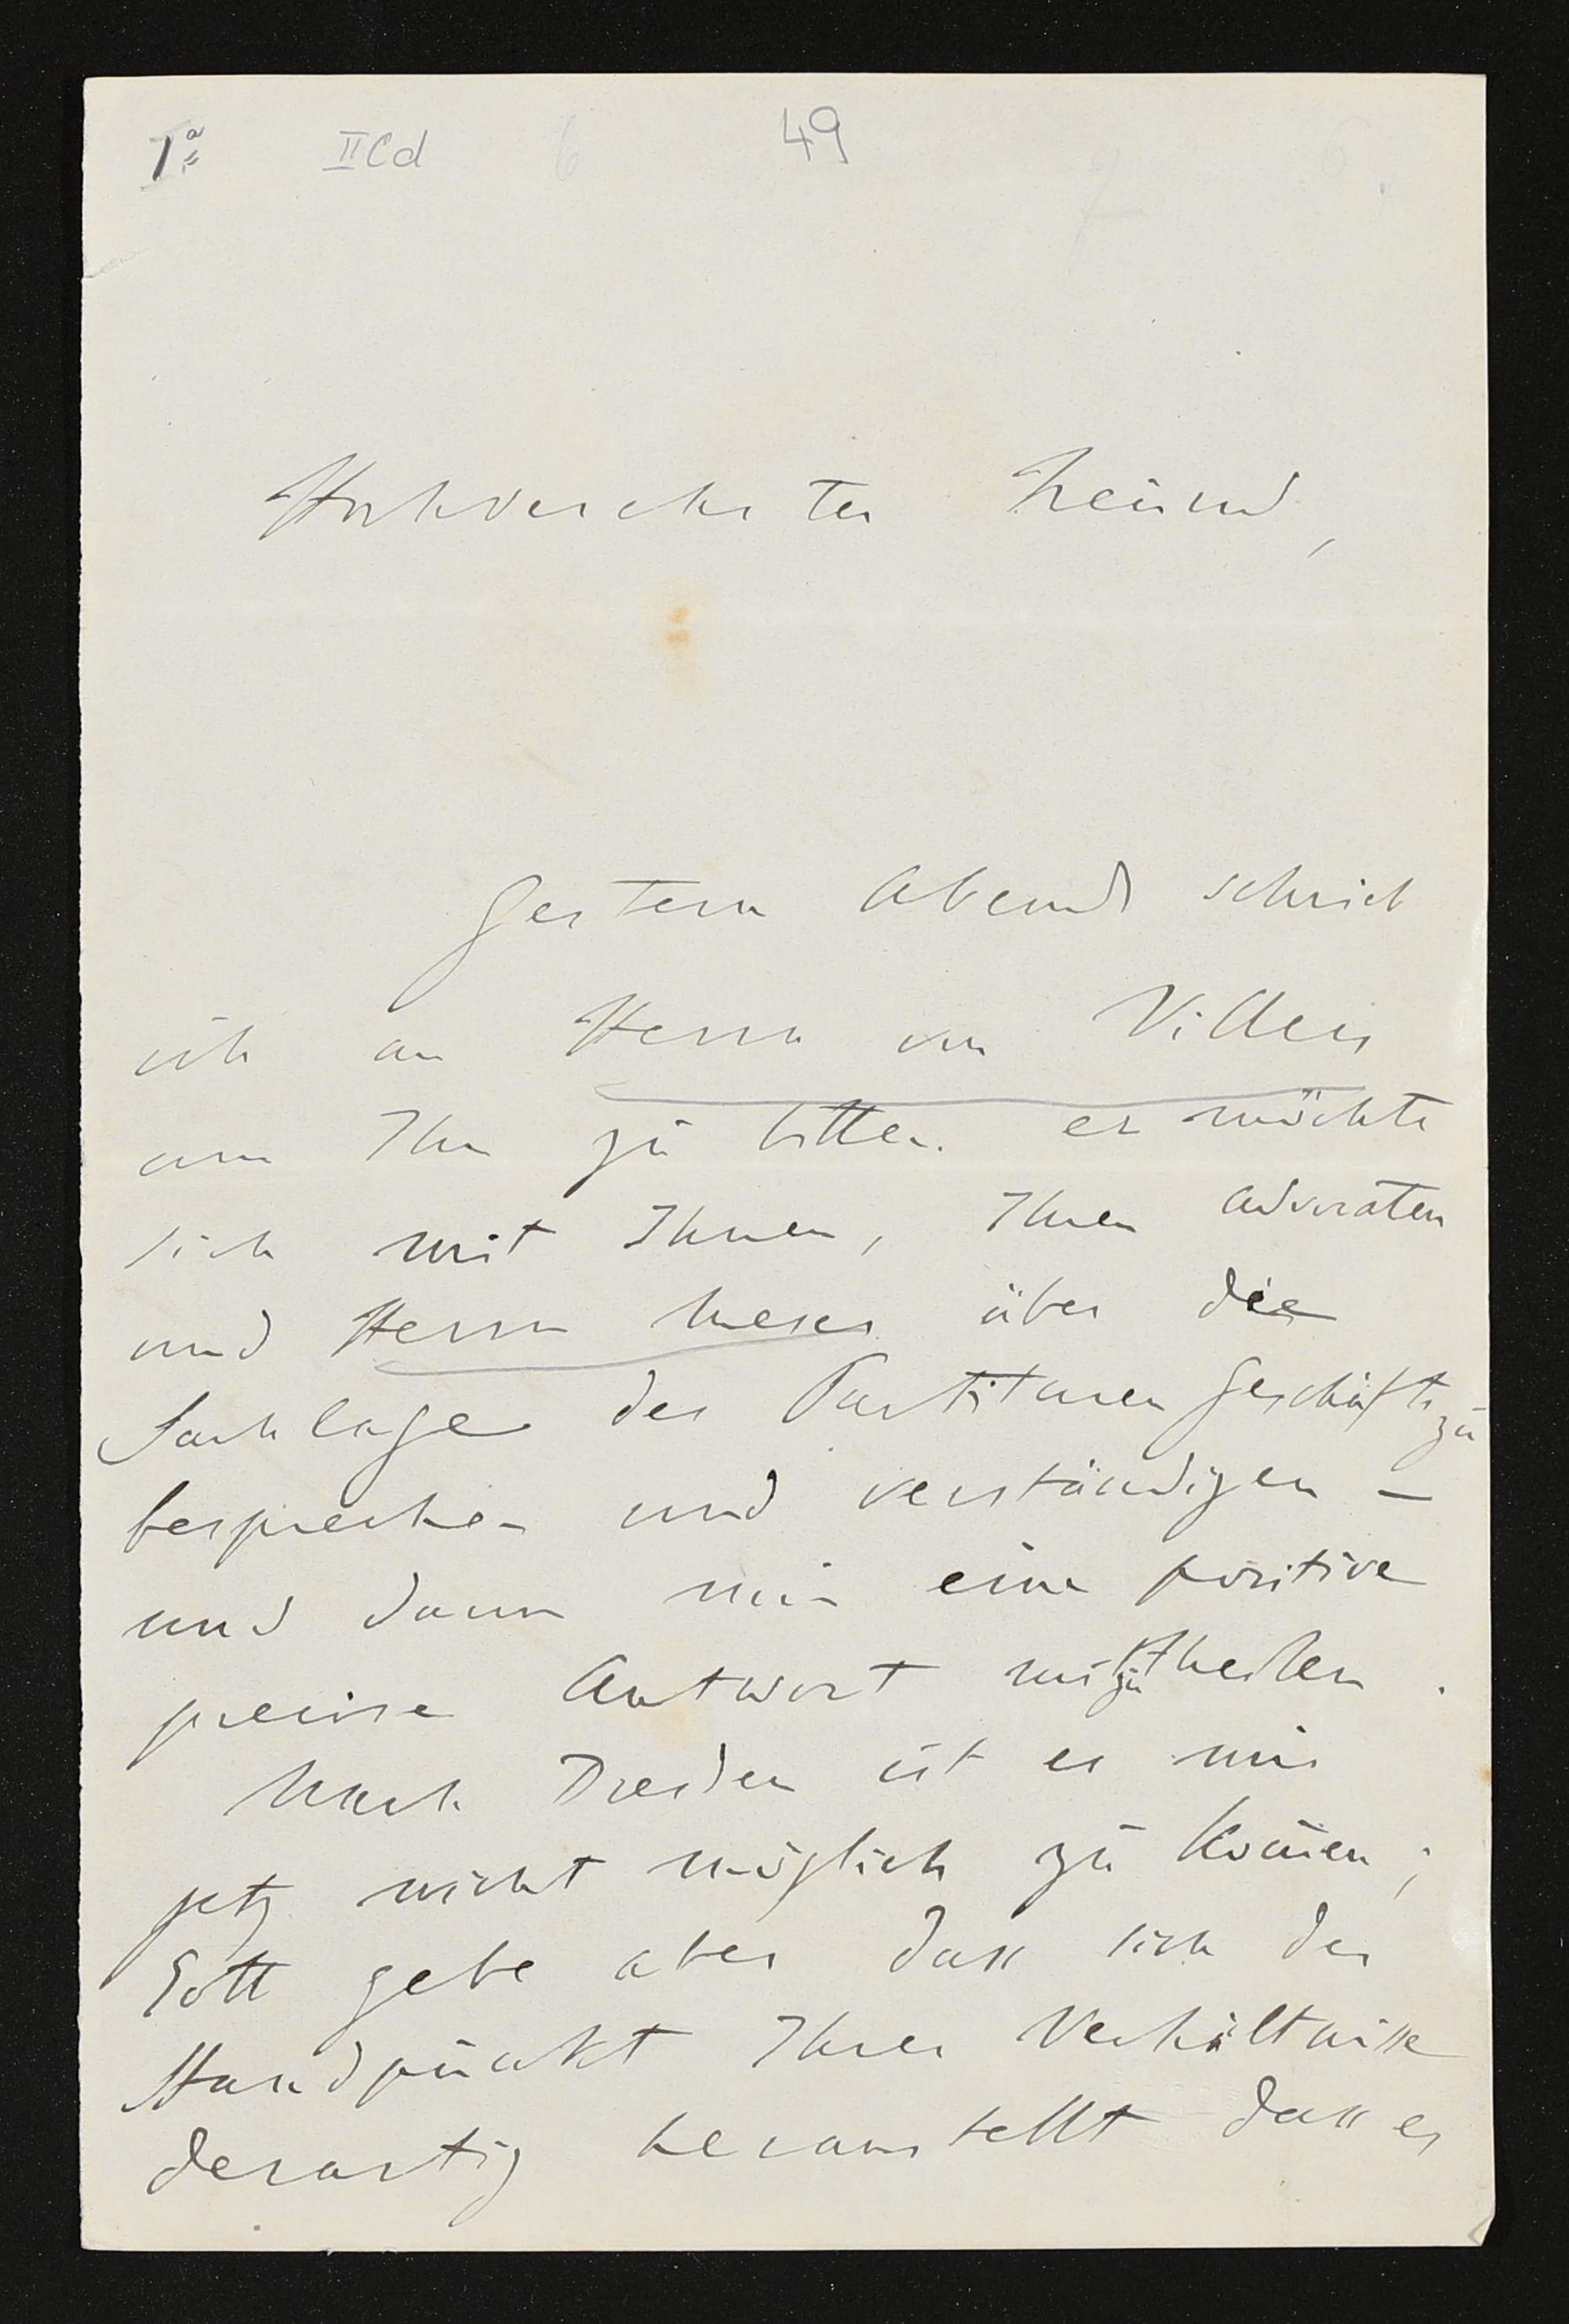 1a IICd 6 49
Hochverehrter Freund,
Gestern Abend schrieb
ich an Herrn von Villers
um Ihn zu bitten er möchte
sich mit Ihnen, Ihren Advocaten
und Herrn Meser über die
Sachlage des Partituren Geschäfts zu
besprechen und verständigen –
und dann mir eine positive
precise Antwort mitzutheilen.
Nach Dresden ist es mir
jetz nicht möglich zu kom̄en;
Gott gebe aber dass sich der
Standpunkt Ihrer Verhältnisse
derartig herausstellt dass es